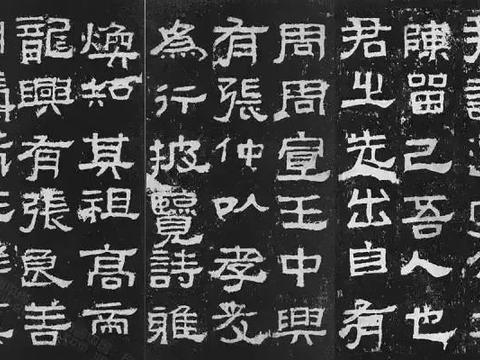 陳留己吾人也
君之先出自有
周周宣王中興
有張仲以孝友
為行披覽詩雅
煥知其祖高帝
龍興有張良善